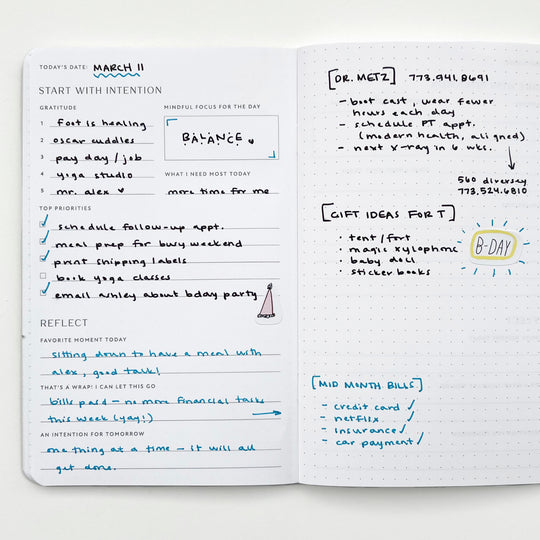 TODAY'S DATE: MARCH 11
START WITH INTENTION
GRATITUDE
1 foot is healing
2 oscar cuddles
3 pay day / job
4 yoga studio
5 mr. alex ♥
MINDFUL FOCUS FOR THE DAY
BALANCE
WHAT I NEED MOST TODAY
more time for me
TOP PRIORITIES
schedule follow-up appt.
meal prep for busy weekend
print shipping labels
book yoga classes
email ashley about bday party
REFLECT
FAVORITE MOMENT TODAY
sitting down to have a meal with
alex, good talk!
THAT'S A WRAP! I CAN LET THIS GO
bills paid – no more financial tasks
this week (yay!)
AN INTENTION FOR TOMORROW
one thing at a time – it will all
get done.
[DR. METZ] 773.941.8691
- boot cast, wear fewer
hours each day
- schedule PT appt.
(modern health, aligned)
- next x-ray in 6 wks.
560 diversey
773.524.6810
[GIFT IDEAS FOR T]
• tent/fort
• magic xylophone
• baby doll
• sticker books
B-DAY
[MID MONTH BILLS]
- credit card ✓
- netflix ✓
- insurance ✓
- car payment ✓